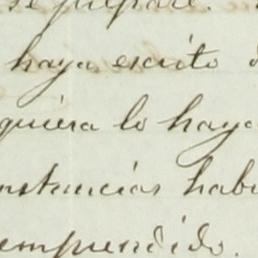 se prepare.
haya escrito
quiera lo haya
nstancias hab
emprendido.